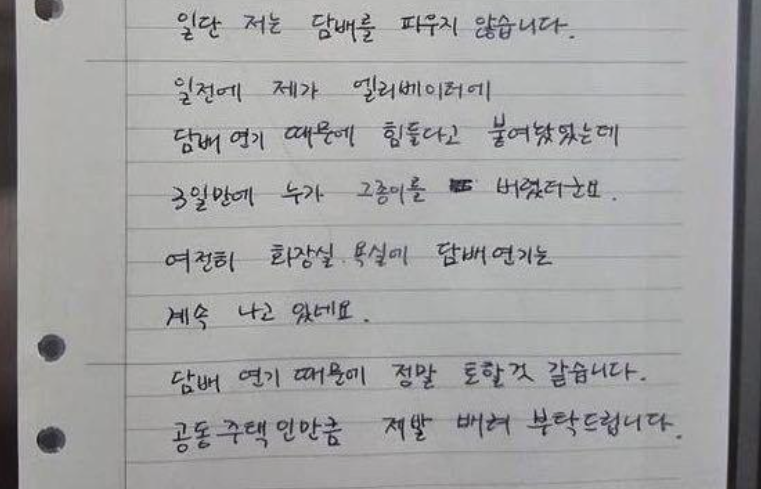 일단 저는 담배를 피우지 않습니다.
일전에 제가 엘리베이터에
담배 연기 때문에 힘들다고 붙여놨었는데
3일만에 누가 그종이를 버렸더군요.
여전히 화장실.욕실에 담배연기는
계속 나고 있네요.
담배 연기 때문에 정말 토할것 같습니다.
공동주택인만큼 제발 배려 부탁드립니다.